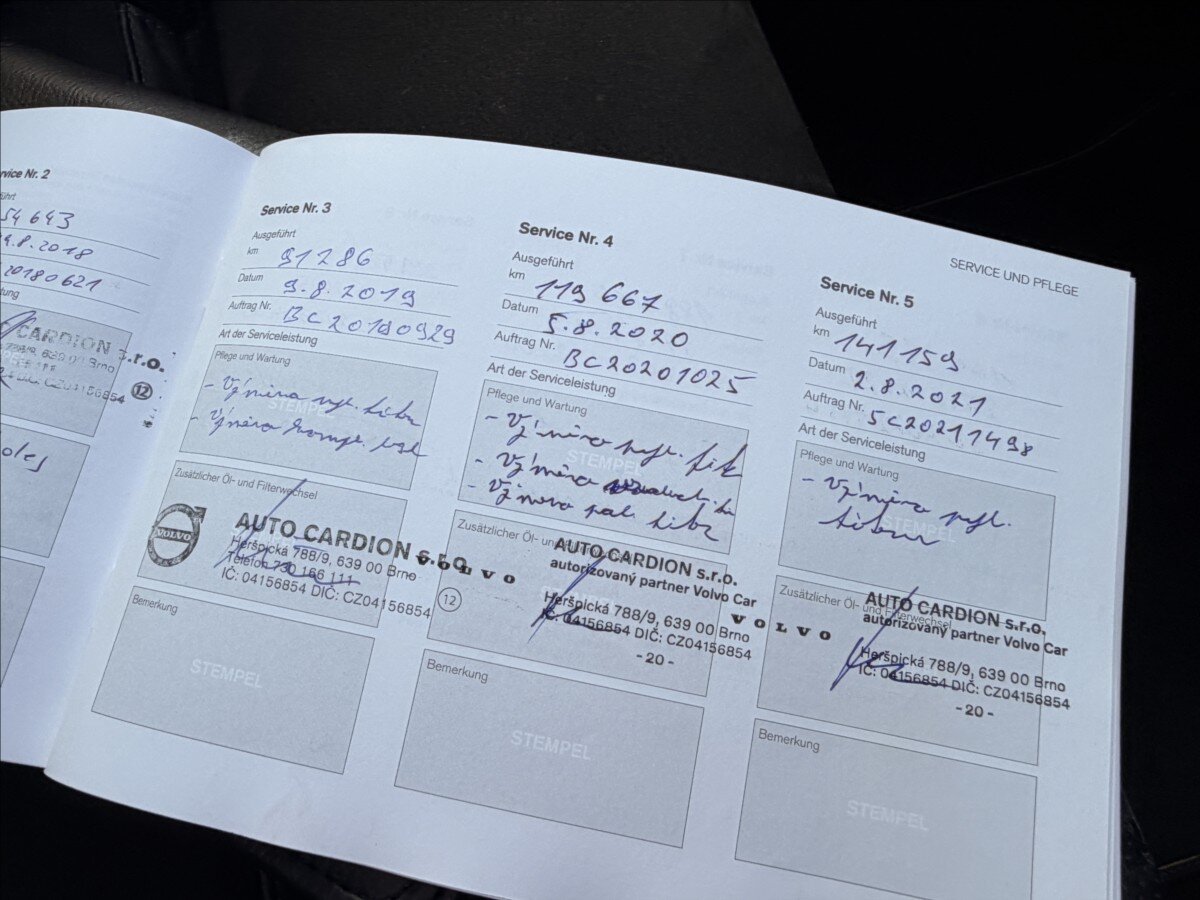 rvice Nr. 2
führt
54 643
.8.2018
20180621
tung
CARDION s.r.o.
788/9, 639 00 Brno
DIČ: CZ04156854
12
Service Nr. 3
Ausgeführt
km 91286
Datum 9.8.2019
Auftrag Nr. BC20190929
Art der Serviceleistung
Pflege und Wartung
- Výměna
STEMPEL
- Výměna
Zusätzlicher Öl- und Filterwechsel
VOLVO
AUTO CARDION s.r.o.
Heršpická 788/9, 639 00 Brno
Telefon 730 166 111
IČ: 04156854 DIČ: CZ04156854
VOLVO
12
Bemerkung
STEMPEL
Service Nr. 4
Ausgeführt
km 119 667
Datum 5.8.2020
Auftrag Nr. BC20201025
Art der Serviceleistung
Pflege und Wartung
- Výměna
STEMPEL
- Výměna
- Výměna pal.
Zusätzlicher Öl- und
AUTO CARDION s.r.o.
autorizovaný partner Volvo Car
Heršpická 788/9, 639 00 Brno
IČ: 04156854 DIČ: CZ04156854
- 20 -
VOLVO
Bemerkung
STEMPEL
SERVICE UND PFLEGE
Service Nr. 5
Ausgeführt
km 141159
Datum 2.8.2021
Auftrag Nr. SC20211498
Art der Serviceleistung
Pflege und Wartung
- Výměna
STEMPEL
Zusätzlicher Öl- und Filterwechsel
AUTO CARDION s.r.o.
autorizovaný partner Volvo Car
Heršpická 788/9, 639 00 Brno
IČ: 04156854 DIČ: CZ04156854
- 20 -
Bemerkung
STEMPEL